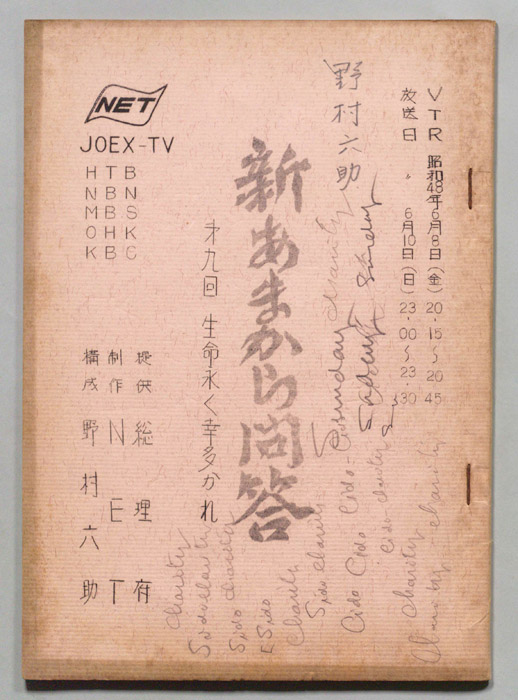 VTR 昭和48年6月8日(金) 20.15〜20.45
放送日 〃 6月10日(日) 23.00〜23.30
野村六助
新あまから問答
才九回 生命永く幸多かれ
NET
JOEX-TV
HTB
NBN
MBS
OHK
KBC
提供 総理府
制作 NET
構成 野村六助
Charity
Sunday
Sunday
Cido Cido Cido
Cido Charity
Sido Charity
Charity
Sido
Sido Charity
Charity
Charity